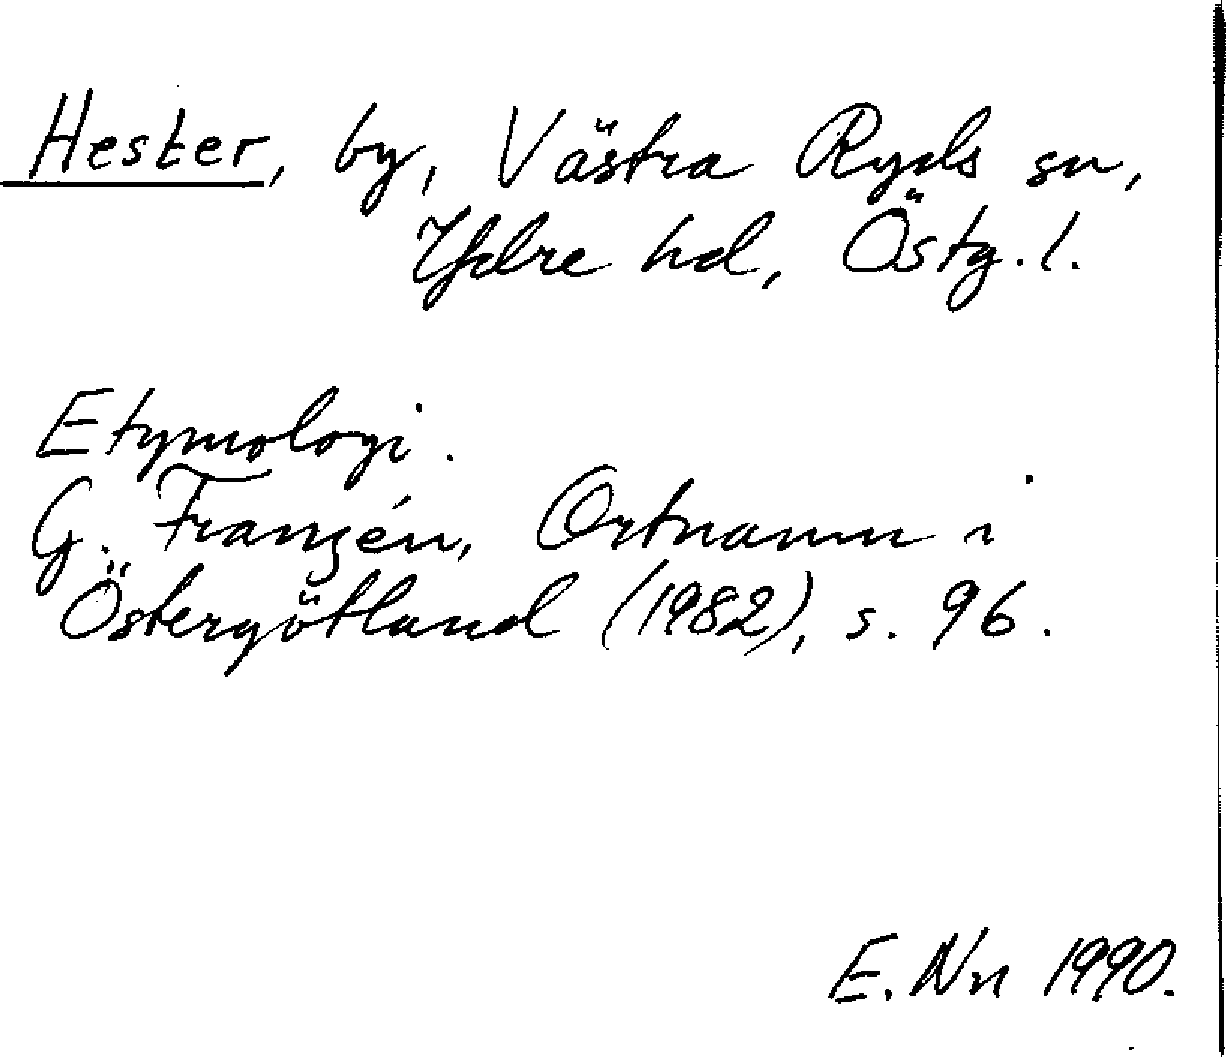 Hester, by, Västra Ryds sn,
Ydre hd, Östg. l.
Etymologi.
G. Franzén, Ortnamn i
Östergötland (1982), s. 96.
E. Nn 1990.